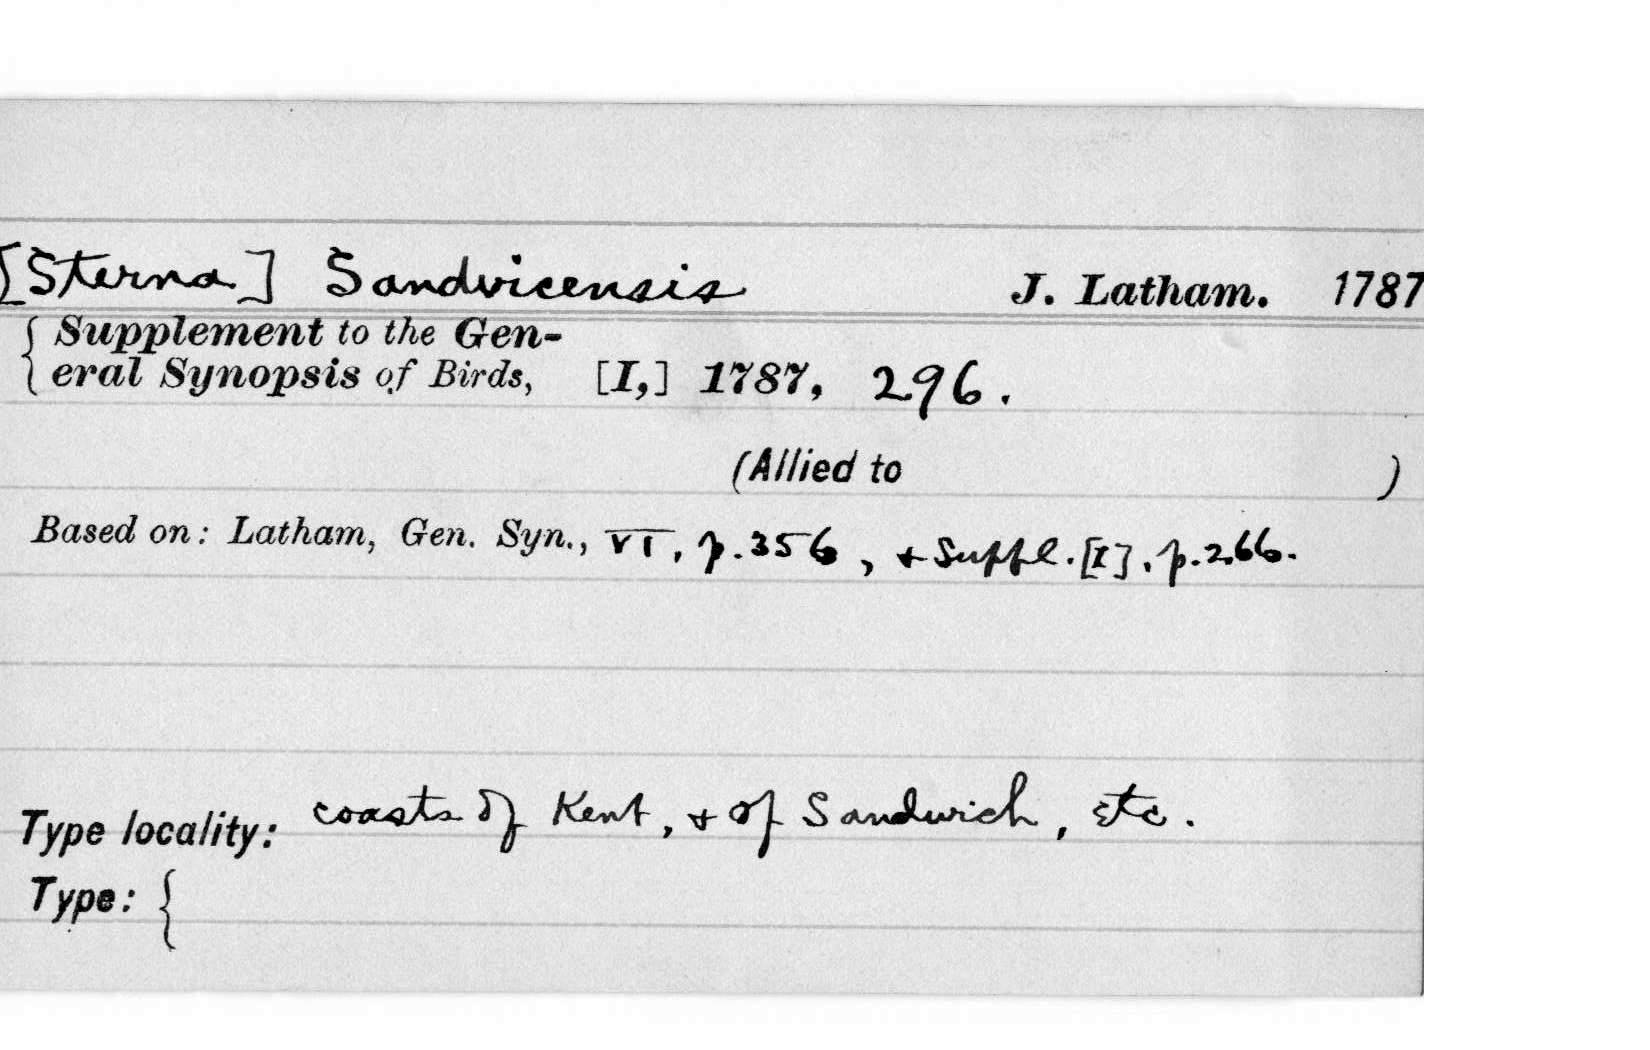 [Sterna] Sandvicensis J. Latham. 1787
{ Supplement to the Gen-
eral Synopsis of Birds, [I,] 1787, 296.
(Allied to )
Based on: Latham, Gen. Syn., VI, p.356, + Suppl.[I], p.266.
Type locality: coasts of Kent, + of Sandwich, etc.
Type: {